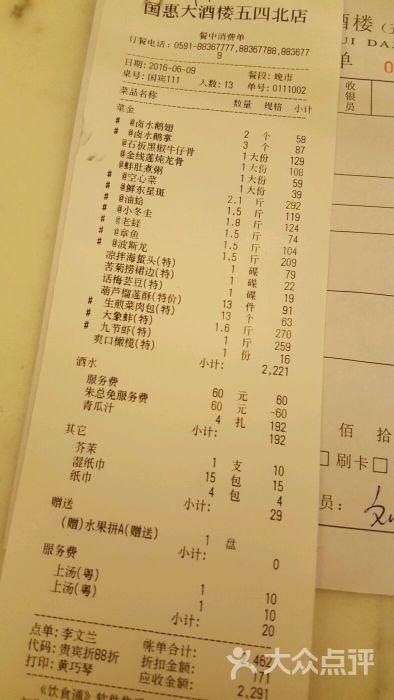 国惠大酒楼五四北店
餐中消费单
订餐电话：0591-88367777,88367788,883677
9
日期：2016-06-09 餐段：晚市
桌号：国宾111 人数：13 单号：0111002
菜品名称 数量 规格 小计
菜金
# @卤水鹅翅 2 个 58
# @卤水鹅掌 3 个 87
@石板黑椒牛仔骨 1 大份 129
@金线莲炖龙骨 1 大份 108
@鲜肚煮粥 1 大份 59
@空心菜 1 大份 39
# @鲜东星斑 2.1 斤 292
# @油蛤 1.5 斤 119
# @小冬圭 1.8 斤 124
# @老蛏 1.5 斤 74
# @章鱼 1.5 斤 104
# @波斯龙 1.5 斤 209
凉拌海蜇头(特) 1 碟 79
苦菊捞裙边(特) 1 碟 22
话梅芸豆(特) 1 碟 19
葫芦榴莲酥(特价) 13 件 91
生煎菜肉包(特) 13 个 63
# 大象鲜(特) 1.6 斤 270
# 九节虾(特) 1 斤 259
爽口橄榄(特) 1 份 16
小计： 2,221
酒水
服务费 60 元 60
朱总免服务费 60 元 -60
青瓜汁 4 扎 192
小计： 192
其它
芥茉 1 支 10
湿纸巾 15 包 15
纸巾 4 包 4
小计： 29
赠送
(赠)水果拼A(赠送) 1 盘
小计： 0
服务费
上汤(粤) 1 10
上汤(粤) 1 10
小计： 20
点单：李文兰 账单合计： 462
代码：贵宾折88折 折扣金额： 171
打印：黄巧琴 应收金额： 2,291
酒楼
单
收银员
佰 拾
刷卡
员：
大众点评